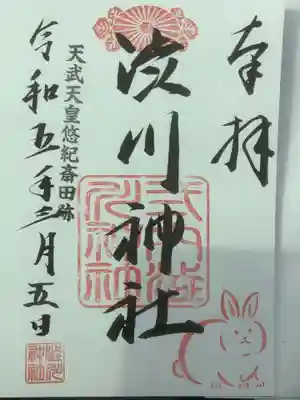 奉拝
渋川神社
天武天皇悠紀斎田跡
令和五年三月五日